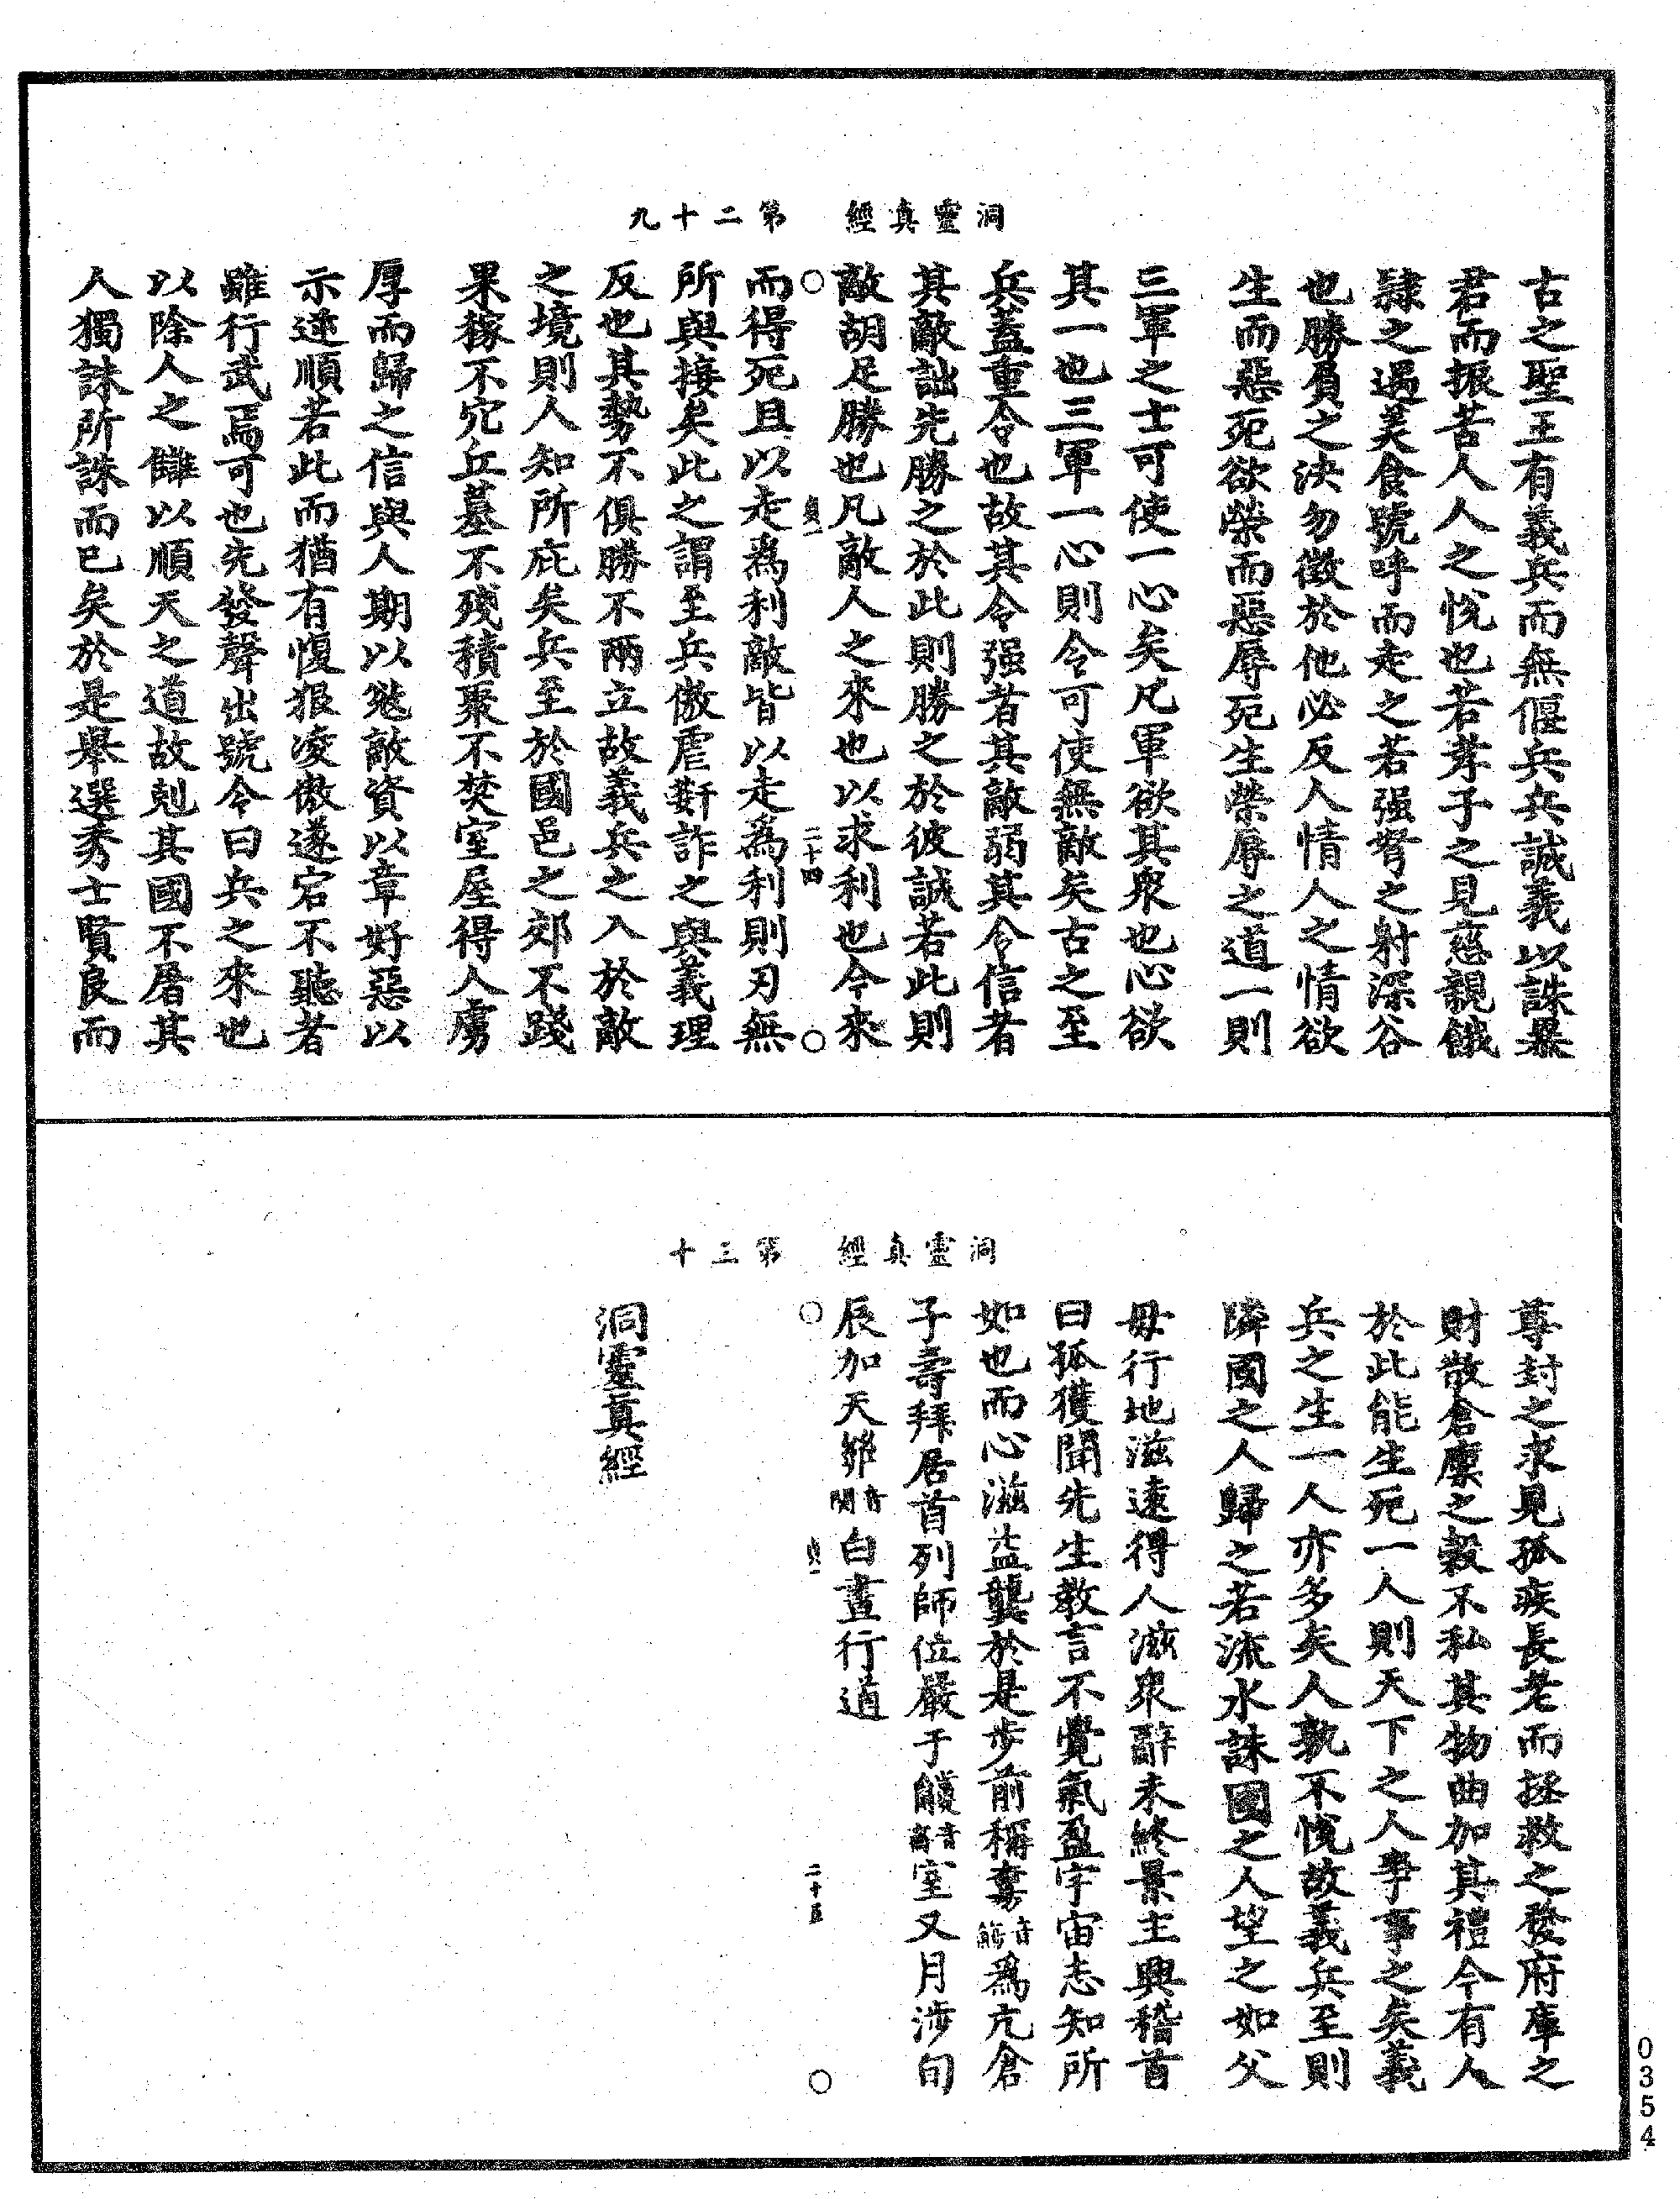 洞靈真經　第二十九
古之聖王有義兵而無偃兵兵誠義以誅暴
君而振苦人人之悅也若孝子之見慈親餓
隸之遇美食號呼而走之若强弩之射深谷
也勝負之決勿徵於他必反人情人之情欲
生而惡死欲榮而惡辱死生榮辱之道一則
三軍之士可使一心矣凡軍欲其衆也心欲
其一也三軍一心則令可使無敵矣古之至
兵蓋重令也故其令强者其敵弱其令信者
其敵詘先勝之於此則勝之於彼誠若此則
敵胡足勝也凡敵人之來也以求利也今來
○ 二十四 ○
而得死且以走爲利敵皆以走爲利則刃無
所與接矣此之謂至兵傲虐姧詐之與義理
反也其勢不俱勝不兩立故義兵之入於敵
之境則人知所庇矣兵至於國邑之郊不踐
果稼不穴丘墓不殘積聚不焚室屋得人虜
厚而歸之信與人期以奪敵資以章好惡以
示逆順若此而猶有愎狠凌傲遂宕不聽者
雖行武焉可也先發聲出號令曰兵之來也
以除人之讎以順天之道故剋其國不屠其
人獨誅所誅而已矣於是舉選秀士賢良而
洞靈真經　第三十
尊封之求見孤疾長老而拯救之發府庫之
財散倉廩之穀不私其物曲加其禮今有人
於此能生死一人則天下之人爭事之矣義
兵之生一人亦多矣人孰不悅故義兵至則
隣國之人歸之若流水誅國之人望之如父
母行地滋遠得人滋衆辭未終景主興稽首
曰孤獲聞先生教言不覺氣盈宇宙志知所
如也而心滋益龔於是步前稱爲亢倉
子壽拜居首列師位嚴于室又月涉旬
辰加天白晝行道
○ 二十五 ○
洞靈真經
0354